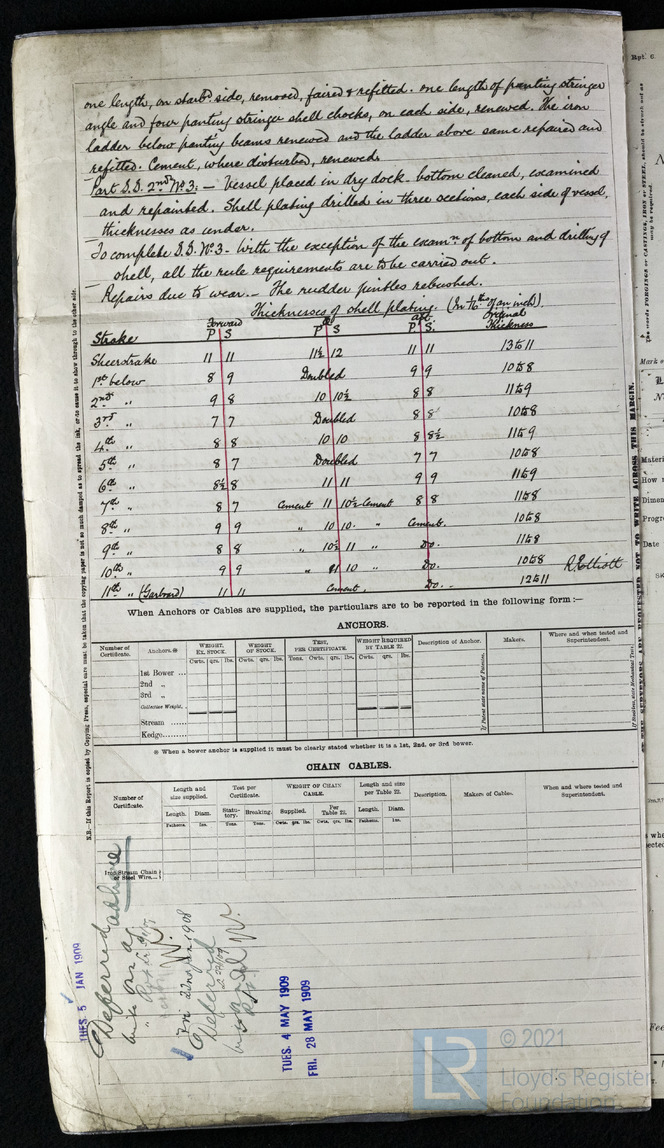 one length, on starbd side, removed, faired & refitted. one length of panting stringer
angle and four panting stringer shell chocks, on each side, renewed. The iron
ladder below panting beams renewed and the ladder above same repaired and
refitted. Cement, where disturbed, renewed.
Part S.S. 2nd No 3. — Vessel placed in dry dock. bottom cleaned, examined
and repainted. Shell plating drilled in three sections, each side of vessel,
thicknesses as under.
To complete S.S. No 3 - With the exception of the examn of bottom and drilling of
shell, all the rule requirements are to be carried out.
Repairs due to wear. — The rudder pintles rebushed.
Thicknesses of shell plating. (In 16ths of an inch).
Strake Forward P S P S aft P S. Original Thickness
Sheerstrake 11 11 11½ 12 11 11 13 to 11
1st below 8 9 Doubled 9 9 10 to 8
2nd „ 9 8 10 10½ 8 8 11 to 9
3rd „ 7 7 Doubled 8 8 10 to 8
4th „ 8 8 10 10 8 8½ 11 to 9
5th „ 8 7 Doubled 7 7 10 to 8
6th „ 8½ 8 11 11 9 9 11 to 9
7th „ 8 7 Cement 11 10½ Cement 8 8 11 to 8
8th „ 9 9 „ 10 10 „ Cement. 10 to 8
9th „ 8 8 „ 10½ 11 „ Do. 11 to 8
10th „ 9 9 „ 11 10 „ Do. 10 to 8 R. Elliott
11th „ (Garboard) 11 11 Cement. Do. 12 to 11
When Anchors or Cables are supplied, the particulars are to be reported in the following form :—
ANCHORS.
Number of Certificate. Anchors.※ WEIGHT, EX. STOCK. WEIGHT OF STOCK. TEST, PER CERTIFICATE. WEIGHT REQUIRED BY TABLE 22. Description of Anchor. Makers. Where and when tested and Superintendent.
Cwts. qrs. lbs. Cwts. qrs. lbs. Tons. Cwts. qrs. lbs. Cwts. qrs. lbs.
1st Bower ...
2nd „
3rd „
Collective Weight.
Stream ......
Kedge........
※ When a bower anchor is supplied it must be clearly stated whether it is a 1st, 2nd, or 3rd bower.
CHAIN CABLES.
Number of Certificate. Length and size supplied. Test per Certificate. WEIGHT OF CHAIN CABLE. Length and size per Table 22. Description. Makers of Cables. When and where tested and Superintendent.
Length. Diam. Statutory. Breaking. Supplied. Per Table 22. Length. Diam.
Fathoms. Ins. Tons. Tons. Cwts. qrs. lbs. Cwts. qrs. lbs. Fathoms. Ins.
Stream Chain or Steel Wire...
N.B.—If this Report is copied by Copying Press, especial care must be taken that the copying paper is not so much damped as to spread the ink, or to cause it to show through to the other side.
TUES. 5 JAN 1909
Deferred
Fri 22nd Jan 1909
Deferred
TUES. 4 MAY 1909
FRI. 28 MAY 1909
LR
© 2021
Lloyd's Register
Foundation
Rpt. 6.